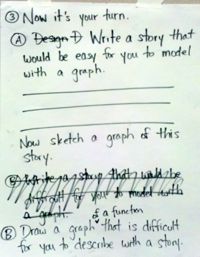 ③ Now it's your turn.
Ⓐ Design D Write a story that
would be easy for you to model
with a graph.
Now sketch a graph of this
story.
Ⓒ Write a story that would be
difficult for you to model with
a graph.
of a function
Ⓑ Draw a graph that is difficult
for you to describe with a story.